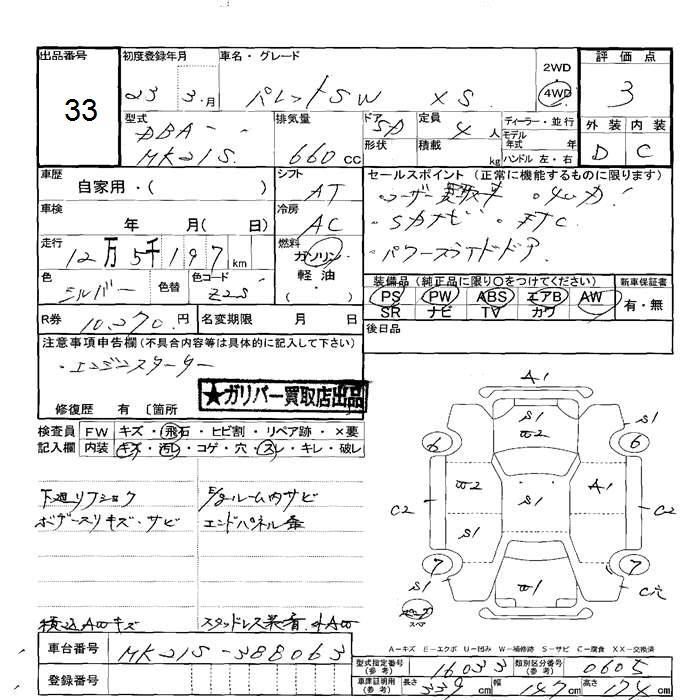 出品番号 初度登録年月 車名・グレード 2WD 評価点
33 23 3.月 パレットSW XS 4WD 3
型式 排気量 ドア 定員 ディーラー・並行 外装 内装
DBA- 660cc 5D 4人 モデル年式 年 D C
MK21S 形状 積載 kg ハンドル 左・右
車歴 シフト セールスポイント(正常に機能するものに限ります)
自家用・( ) AT ・ユーザー買取車 ・4WD!
車検 冷房 ・SDナビ ・ETC
年 月( 日) AC ・パワースライドドア
走行 燃料
12万5千197km ガソリン
色 色替 色コード 軽油
シルバー Z2S ・( )
装備品(純正品に限り○をつけてください) 新車保証書
PS PW ABS エアB AW 有・無
SR ナビ TV カワ
R券 10,270円 名変期限 月 日 後日品
注意事項申告欄(不具合内容等は具体的に記入して下さい)
・エンジンスターター
★ガリバー買取店出品
修復歴 有 〔箇所
検査員 FW キズ・飛石・ヒビ割・リペア跡・×要
記入欄 内装 キズ・汚レ・コゲ・穴・スレ・キレ・破レ
A1
S1 S1
W2
6 6
W2 S1 A1
C2 C2
S1
7 7
S1 W1 C穴
スペア
下廻リフショク E/gルーム内サビ
ボデースリキズ・サビ エンドパネル歪
積込AWキズ スタッドレス装着.
A-キズ E-エクボ U-凹み W-補修跡 S-サビ C-腐食 XX-交換済
車台番号 MK21S-388063
型式指定番号(参考) 16033 類別区分番号(参考) 0605
登録番号
車庫証明用(参考) 長さ 339cm 幅 147cm 高さ 174cm